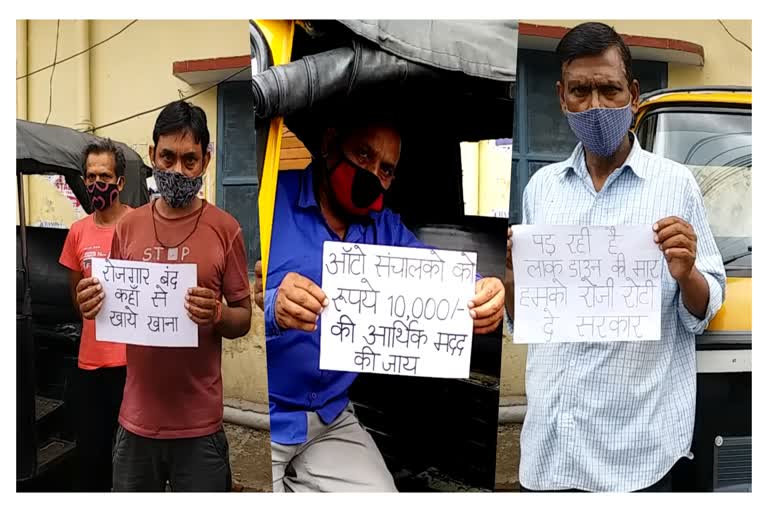 STOP
रोजगार बंद
कहाँ से
खाये खाना
ऑटो संचालको को
रूपये 10,000/-
की आर्थिक मदद
की जाय
पड़ रही है
लाक डाउन की मार
हमको रोजी रोटी
दे सरकार